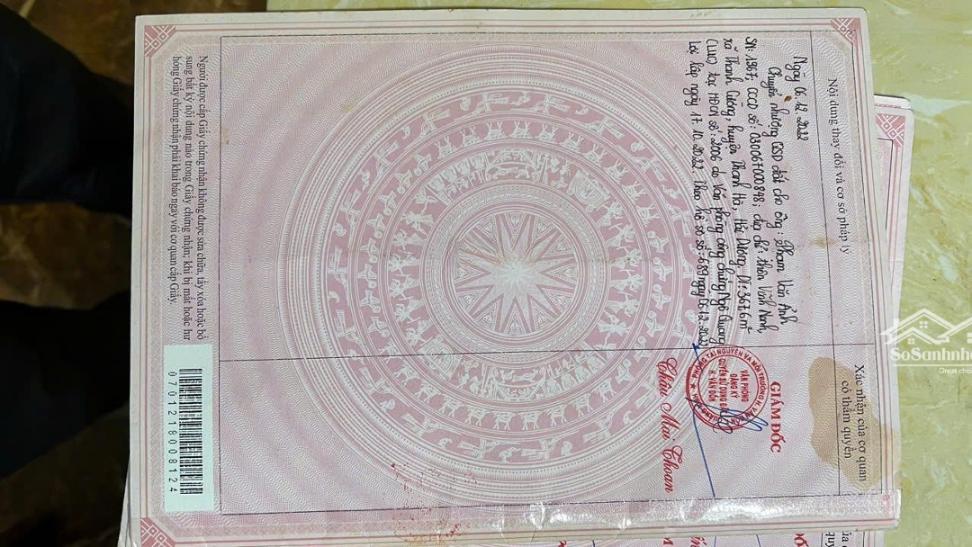 Nội dung thay đổi và cơ sở pháp lý
Xác nhận của cơ quan
có thẩm quyền
Ngày 06.12.2022
Chuyển nhượng QSD đất cho ông: Phạm Văn
SN: 1967; CCCD số: 030067000848; địa chỉ: thôn Vĩnh Ninh,
xã Thanh Cường, huyện Thanh Hà, Hải Dương, Dt: 367,6m²
(LUC) tại HĐCN số: 2006 do Văn phòng công chứng Ngô Quang
Lợi lập ngày 17.10.2022. Theo hồ sơ số: 689 ngày 06.12.2022
GIÁM ĐỐC
VĂN PHÒNG
ĐĂNG KÝ
QUYỀN SỬ DỤNG ĐẤT
H. VÂN ĐỒN
Châu Mai Thoan
Người được cấp Giấy chứng nhận không được sửa chữa, tẩy xóa hoặc bổ
sung bất kỳ nội dung nào trong Giấy chứng nhận; khi bị mất hoặc hư
hỏng Giấy chứng nhận phải khai báo ngay với cơ quan cấp Giấy.
0701218008124
SoSanhnh